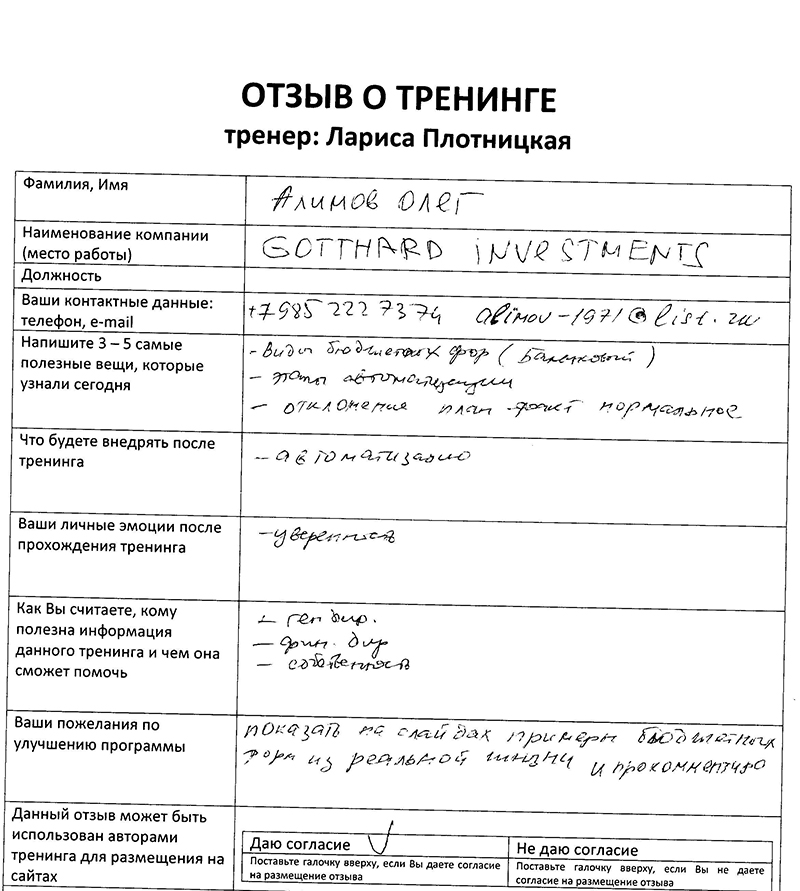 ОТЗЫВ О ТРЕНИНГЕ
тренер: Лариса Плотницкая
Фамилия, Имя
Алимов Олег
Наименование компании
(место работы)
GOTTHARD iNVeSTMENTS
Должность
Ваши контактные данные:
телефон, e-mail
+7985 222 7374 alimov-1971@list.ru
Напишите 3 – 5 самые
полезные вещи, которые
узнали сегодня
- Виды бюджетных фор (Балансовый)
- этапы автоматизации
- отклонение план-факт нормальное
Что будете внедрять после
тренинга
- автоматизацию
Ваши личные эмоции после
прохождения тренинга
- уверенность
Как Вы считаете, кому
полезна информация
данного тренинга и чем она
сможет помочь
- ген дир.
- фин. дир
- собственность
Ваши пожелания по
улучшению программы
показать на слайдах примеры бюджетных
форм из реальной жизни и прокомментиро
Данный отзыв может быть
использован авторами
тренинга для размещения на
сайтах
Даю согласие
Поставьте галочку вверху, если Вы даете согласие
на размещение отзыва
Не даю согласие
Поставьте галочку вверху, если Вы не даете
согласие на размещение отзыва